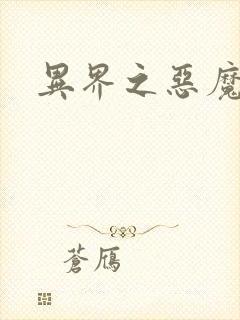 異界之惡魔
蒼鴈